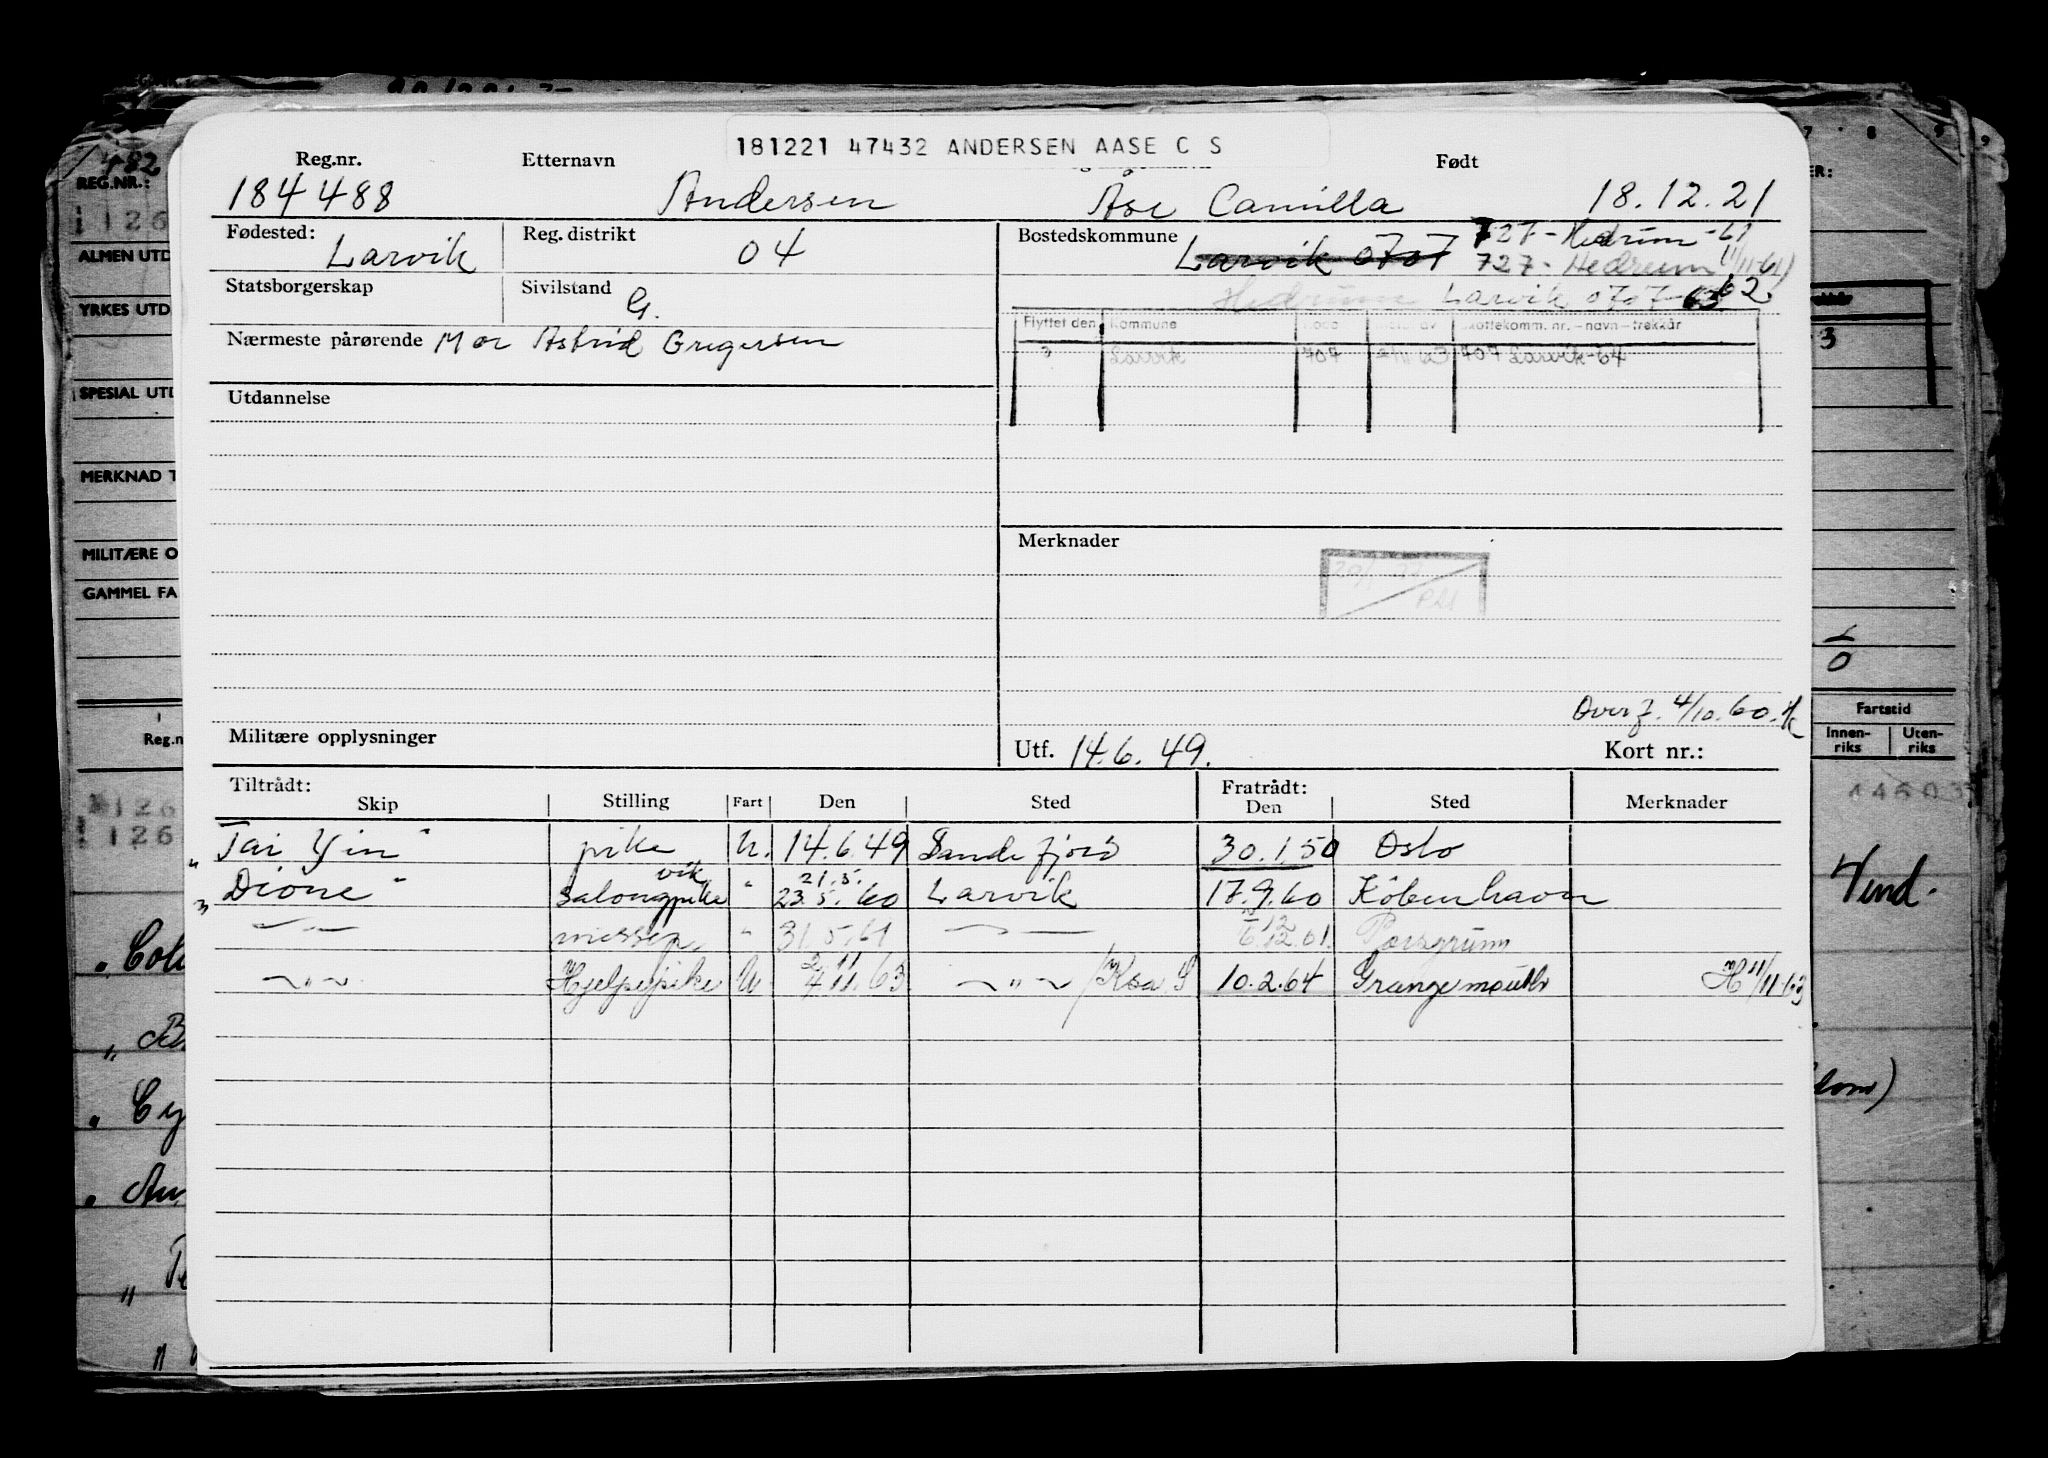 181221 47432 ANDERSEN AASE C S
Reg.nr. Etternavn Født
184488 Andersen Åse Camilla 18.12.21
Fødested: Larvik Reg. distrikt 04 Bostedskommune Larvik 0707 727 - Hedrum - 61
727 - Hedrum
Statsborgerskap Sivilstand G. Hedrum Larvik 0707
Flyttet den Kommune Skattekomm. nr. – navn – trekkår
Nærmeste pårørende Mor Astrid Gregersen
3 Larvik 707 63 707 Larvik - 64
Utdannelse
Merknader
Overf. 4/10.60.
Militære opplysninger Utf. 14.6.49. Kort nr.:
Tiltrådt: Fratrådt:
Skip Stilling Fart Den Sted Den Sted Merknader
"Tai Yin" pike U. 14.6.49 Sandefjord 30.1.50 Oslo
vik 21.5.
"Dione" salongpike " 23.5.60 Larvik 17.9.60 København
— " — messep. " 31.5.61 — " — 12.61. Porsgrunn
— " — Hjelpepike U 11.63 — " — 10.2.64 Grangemouth 11/11-63
REG.NR.:
126
ALMEN UTD
YRKES UTD
SPESIAL UTD
MERKNAD T
MILITÆRE O
GAMMEL FA
Reg.n
126
126
7 8 9
ER:
3
0
Fartstid
Innen-
riks
Uten-
riks